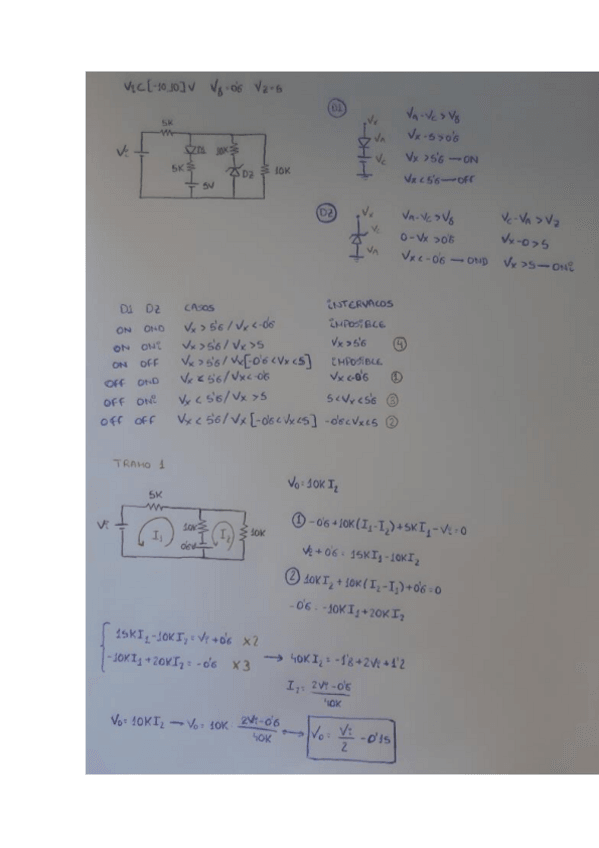 Vi ∈ [-10,10] V Vγ = 0'6 Vz = 5
5K
Vi
D1
5K
5V
10K
DZ
10K
D1
Vx
VA
VC
VA - VC > Vγ
Vx - 5 > 0'6
Vx > 5'6 → ON
Vx < 5'6 → OFF
DZ
Vx
VC
VA
VA - VC > Vγ
0 - Vx > 0'6
Vx < -0'6 → OND
VC - VA > VZ
Vx - 0 > 5
Vx > 5 → ONZ
D1 DZ CASOS INTERVALOS
ON OND Vx > 5'6 / Vx < -0'6 IMPOSIBLE
ON ONZ Vx > 5'6 / Vx > 5 Vx > 5'6 4
ON OFF Vx > 5'6 / Vx [-0'6 < Vx < 5] IMPOSIBLE
OFF OND Vx < 5'6 / Vx < -0'6 Vx < -0'6 1
OFF ONZ Vx < 5'6 / Vx > 5 5 < Vx < 5'6 3
OFF OFF Vx < 5'6 / Vx [-0'6 < Vx < 5] -0'6 < Vx < 5 2
TRAMO 1
5K
Vi
I1
10K
0'6V
I2
10K
Vo = 10K I2
1 -0'6 + 10K(I1 - I2) + 5K I1 - Vi = 0
Vi + 0'6 = 15K I1 - 10K I2
2 10K I2 + 10K(I2 - I1) + 0'6 = 0
-0'6 = -10K I1 + 20K I2
15K I1 - 10K I2 = Vi + 0'6 x2
-10K I1 + 20K I2 = -0'6 x3
→ 40K I2 = -1'8 + 2Vi + 1'2
I2 = 2Vi - 0'6 / 40K
Vo = 10K I2 → Vo = 10K 2Vi - 0'6 / 40K → Vo = Vi / 2 - 0'15